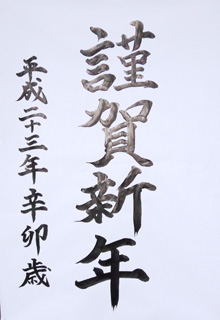 謹賀新年
平成二十三年辛卯歳